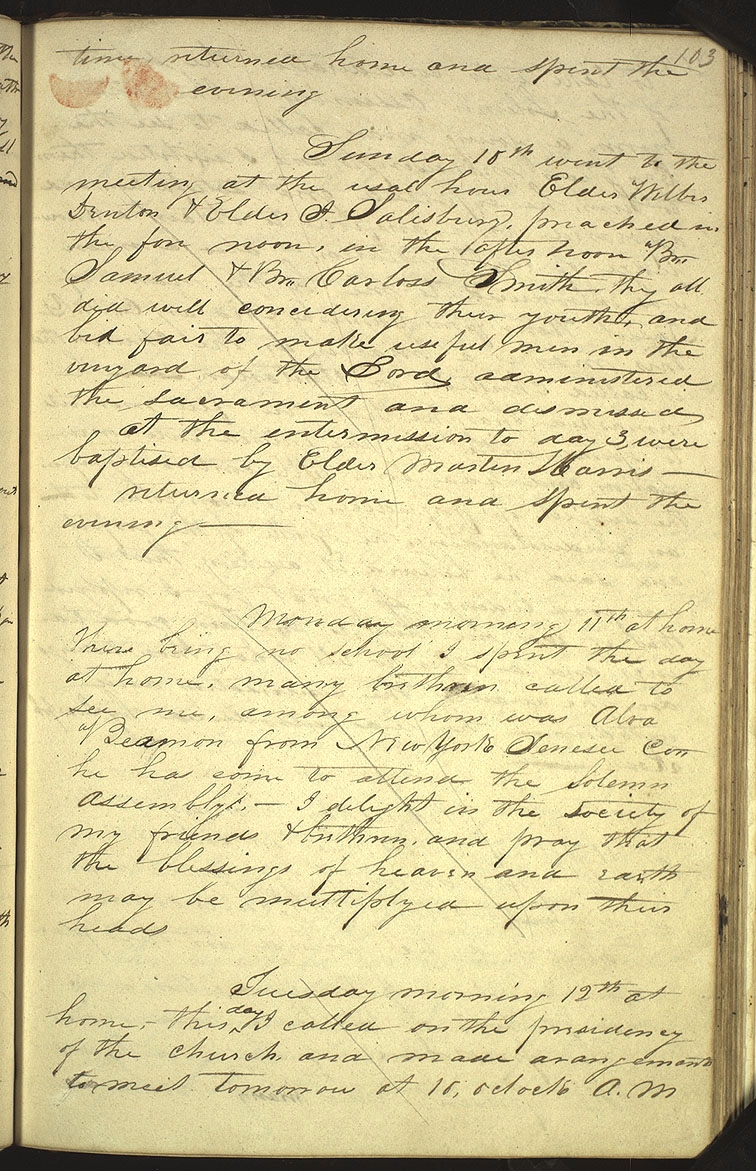 103
time, returned home and spent the
evening
Sunday 10th went to the
meeting at the usal hour Elder Wilber
Denton & Elder J. Salisbury, preached in
the fore noon, in the after noon Br.
Samuel & Br. Carloss Smith, they all
did well concidering their youth, and
bid fair to make useful men in the
vinyard of the Lord, administered
the sacrament and dismissed
at the entermission to day 3, were
baptised by Elder Martin Harris —
returned home and spent the
evening —
Monday morning 11th at home
There being no school I spent the day
at home, many brethren called to
see me, among whom was Alva
Beamon from New York Jenesee Con
he has come to attend the Solemn
Assembly: — I delight in the Society of
my friends & brethren, and pray that
the blessings of heaven and earth
may be multiplyed upon their
heads
Tuesday morning 12th at
home, — this day I called on the presidency
of the church, and made arangements
to meet tomorrow at 10, oclock A.M